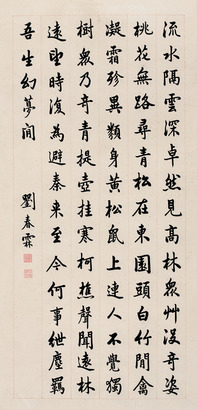 流水隔雲深卓然見高林眾艸沒奇姿
桃花無路尋青松在東園頭白竹間禽
凝霜殄異類身黃松鼠上連人不覺獨
樹眾乃奇青提壺挂寒柯樵聲聞遠林
遠望時復為避秦來至今何事紲塵羈
吾生幻夢間
劉春霖